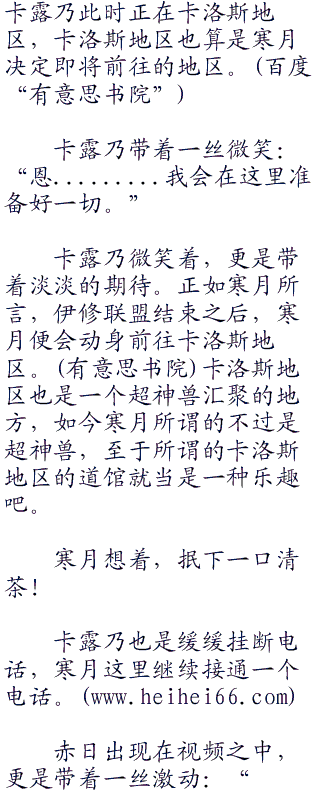 卡露乃此时正在卡洛斯地
区，卡洛斯地区也算是寒月
决定即将前往的地区。(百度
“有意思书院”)
卡露乃带着一丝微笑：
“恩.........我会在这里准
备好一切。”
卡露乃微笑着，更是带
着淡淡的期待。正如寒月所
言，伊修联盟结束之后，寒
月便会动身前往卡洛斯地
区。(有意思书院)卡洛斯地
区也是一个超神兽汇聚的地
方，如今寒月所谓的不过是
超神兽，至于所谓的卡洛斯
地区的道馆就当是一种乐趣
吧。
寒月想着，抿下一口清
茶！
卡露乃也是缓缓挂断电
话，寒月这里继续接通一个
电话。(www.heihei66.com)
赤日出现在视频之中，
更是带着一丝激动：“